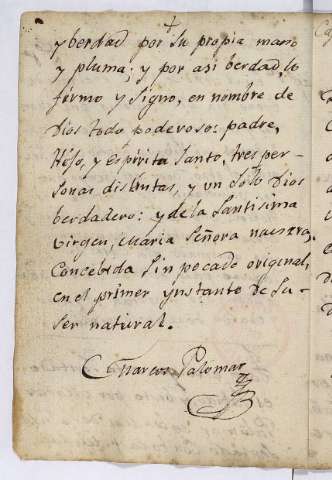 ✝
y berdad por su propia mano
y pluma; y por asi berdad, lo
firmo y signo, en nombre de
Dios todo poderoso: padre,
Hijo, y espirita santo, tres per-
sonas distintas, y un solo Dios
berdadero: y de la santisima
virgen, Maria señora nuestra,
Concebida sin pecado original,
en el primer ynstante de su
ser natural.
Marcos Palomar